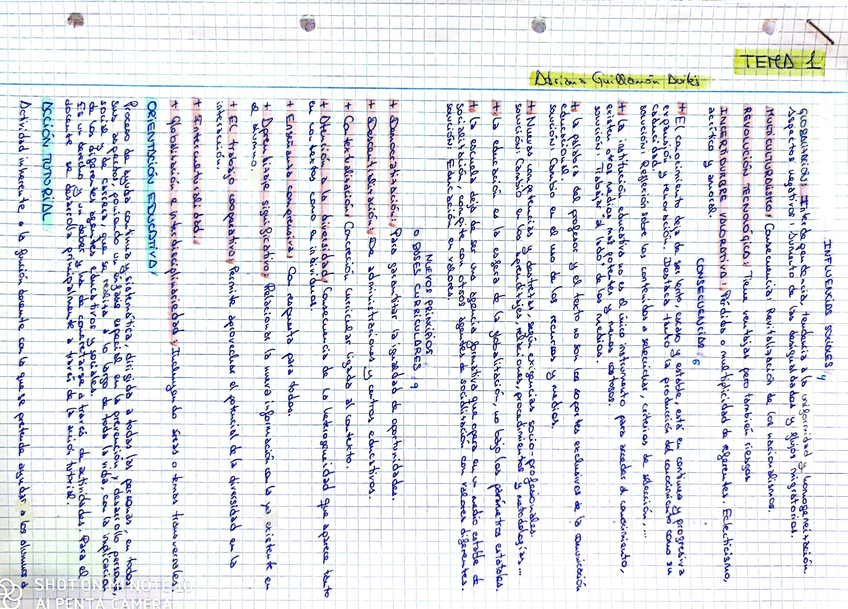 TEMA 1
Adriana Guillamón
INFLUENCIAS SOCIALES: 4
GLOBALIZACIÓN: Interdependencia, tendencia a la uniformidad y homogeneización.
Aspectos negativos: Aumento de las desigualdades y flujos migratorios.
MULTICULTURALISMO: Consecuencia: Revitalización de los nacionalismos.
REVOLUCIÓN TECNOLÓGICA: Tiene ventajas pero también riesgos
INCERTIDUMBRE VALORATIVA: Pérdida o multiplicidad de referentes. Eclecticismo,
acrítico y amoral.
CONSECUENCIAS: 6
+ El conocimiento deja de ser lento, escaso y estable, está en continua y progresiva
expansión y renovación. Destaca tanto la producción del conocimiento como su
caducidad.
solución: Reflexión sobre los contenidos a seleccionar, criterios de selección,...
+ La institución educativa no es el único instrumento para acceder al conocimiento,
existen otros medios más potentes y menos costosos.
solución: Trabajar al lado de los medios.
+ La palabra del profesor y el texto no son los soportes exclusivos de la comunicación
educacional.
solución: Cambio en el uso de los recursos y medios.
+ Nuevas competencias y destrezas, según exigencias socio-profesionales
solución: Cambio en los aprendizajes, relaciones, procedimientos y metodologías...
+ La educación es en la esfera de la globalización, no bajo los parámetros estatales.
+ La escuela deja de ser una agencia formativa que opera en un medio estable de
socialización, compite con otros agentes de socialización con valores diferentes.
solución: Educación en valores.
NUEVOS PRINCIPIOS
O BASES CURRICULARES: 9
+ Democratización: Para garantizar la igualdad de oportunidades.
+ Descentralización: De administraciones y centros educativos.
+ Contextualización: Concreción curricular ligada al contexto.
+ Atención a la diversidad: Consecuencia de la heterogeneidad que aparece tanto
en contextos como en individuos.
+ Enseñanza comprensiva: Da respuesta para todos.
+ Aprendizaje significativo: Relacionar la nueva información con la ya existente en
el alumno.
+ El trabajo cooperativo: Permite aprovechar el potencial de la diversidad en la
interacción.
+ Interculturalidad:
+ Globalización e interdisciplinariedad: Incluyendo áreas o temas transversales.
ORIENTACIÓN EDUCATIVA:
Proceso de ayuda continua y sistemática, dirigida a todas las personas, en todos
sus aspectos, poniendo un énfasis especial en la prevención y desarrollo personal,
social y de carrera que se realiza a lo largo de toda la vida, con la implicación
de los diferentes agentes educativos y sociales.
Es un derecho y un deber y ha de concretarse a través de actividades. Para el
docente se desarrolla principalmente a través de la acción tutorial.
ACCIÓN TUTORIAL:
Actividad inherente a la función docente con la que se pretende ayudar a los alumnos a
SHOT ON MI NOTE 10
ALPENTA CAMERA